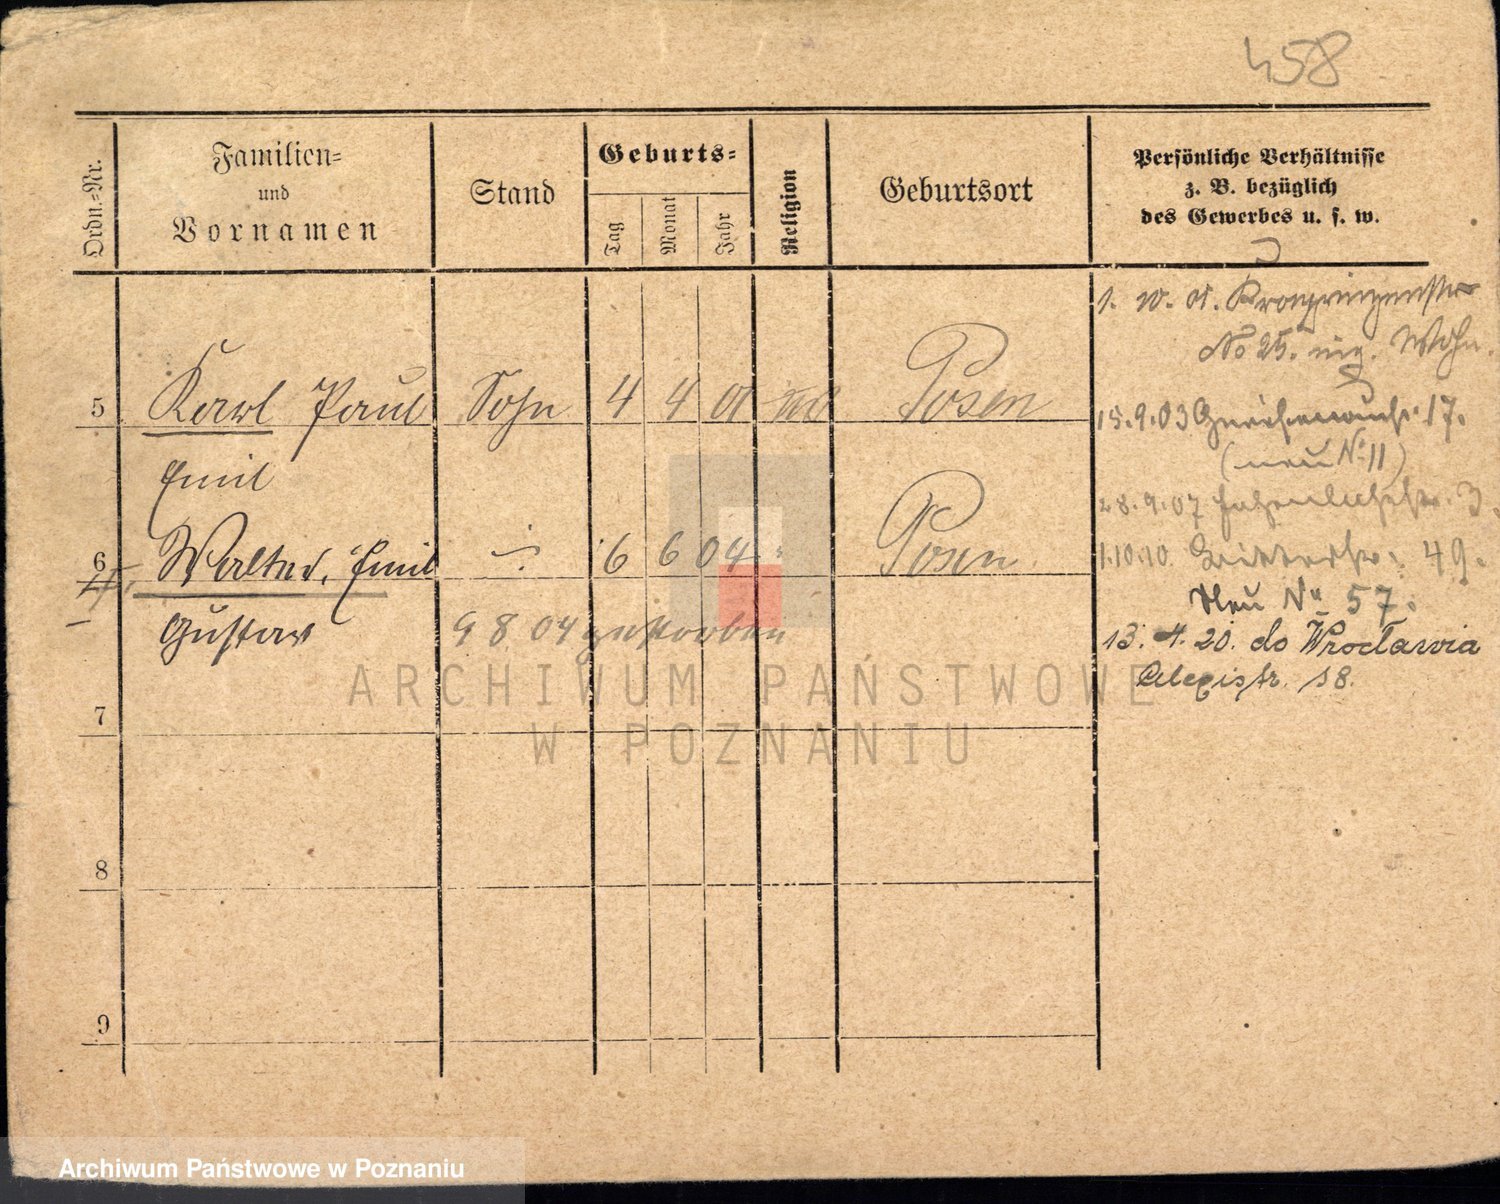 458
Ordn.-Nr.
Familien-
und
Vornamen
Stand
Geburts-
Tag
Monat
Jahr
Religion
Geburtsort
Persönliche Verhältnisse
z. B. bezüglich
des Gewerbes u. s. w.
1. 10. 01. Kronprinzenstr
No 25. Wohn.
5 Karl Paul Sohn 4 4 01 Posen
15.9.03 17.
Emil
(neu No 11)
28.9.07 3.
6 Walter, Emil -:- 6 6 04 " Posen
1.10.10. 49.
Neu No 57.
Gustav 9 8 04 gestorben
13. 4. 20. do Wrocławia
Alexistr. 18.
7
8
9
ARCHIWUM PAŃSTWOWE
W POZNANIU
Archiwum Państwowe w Poznaniu